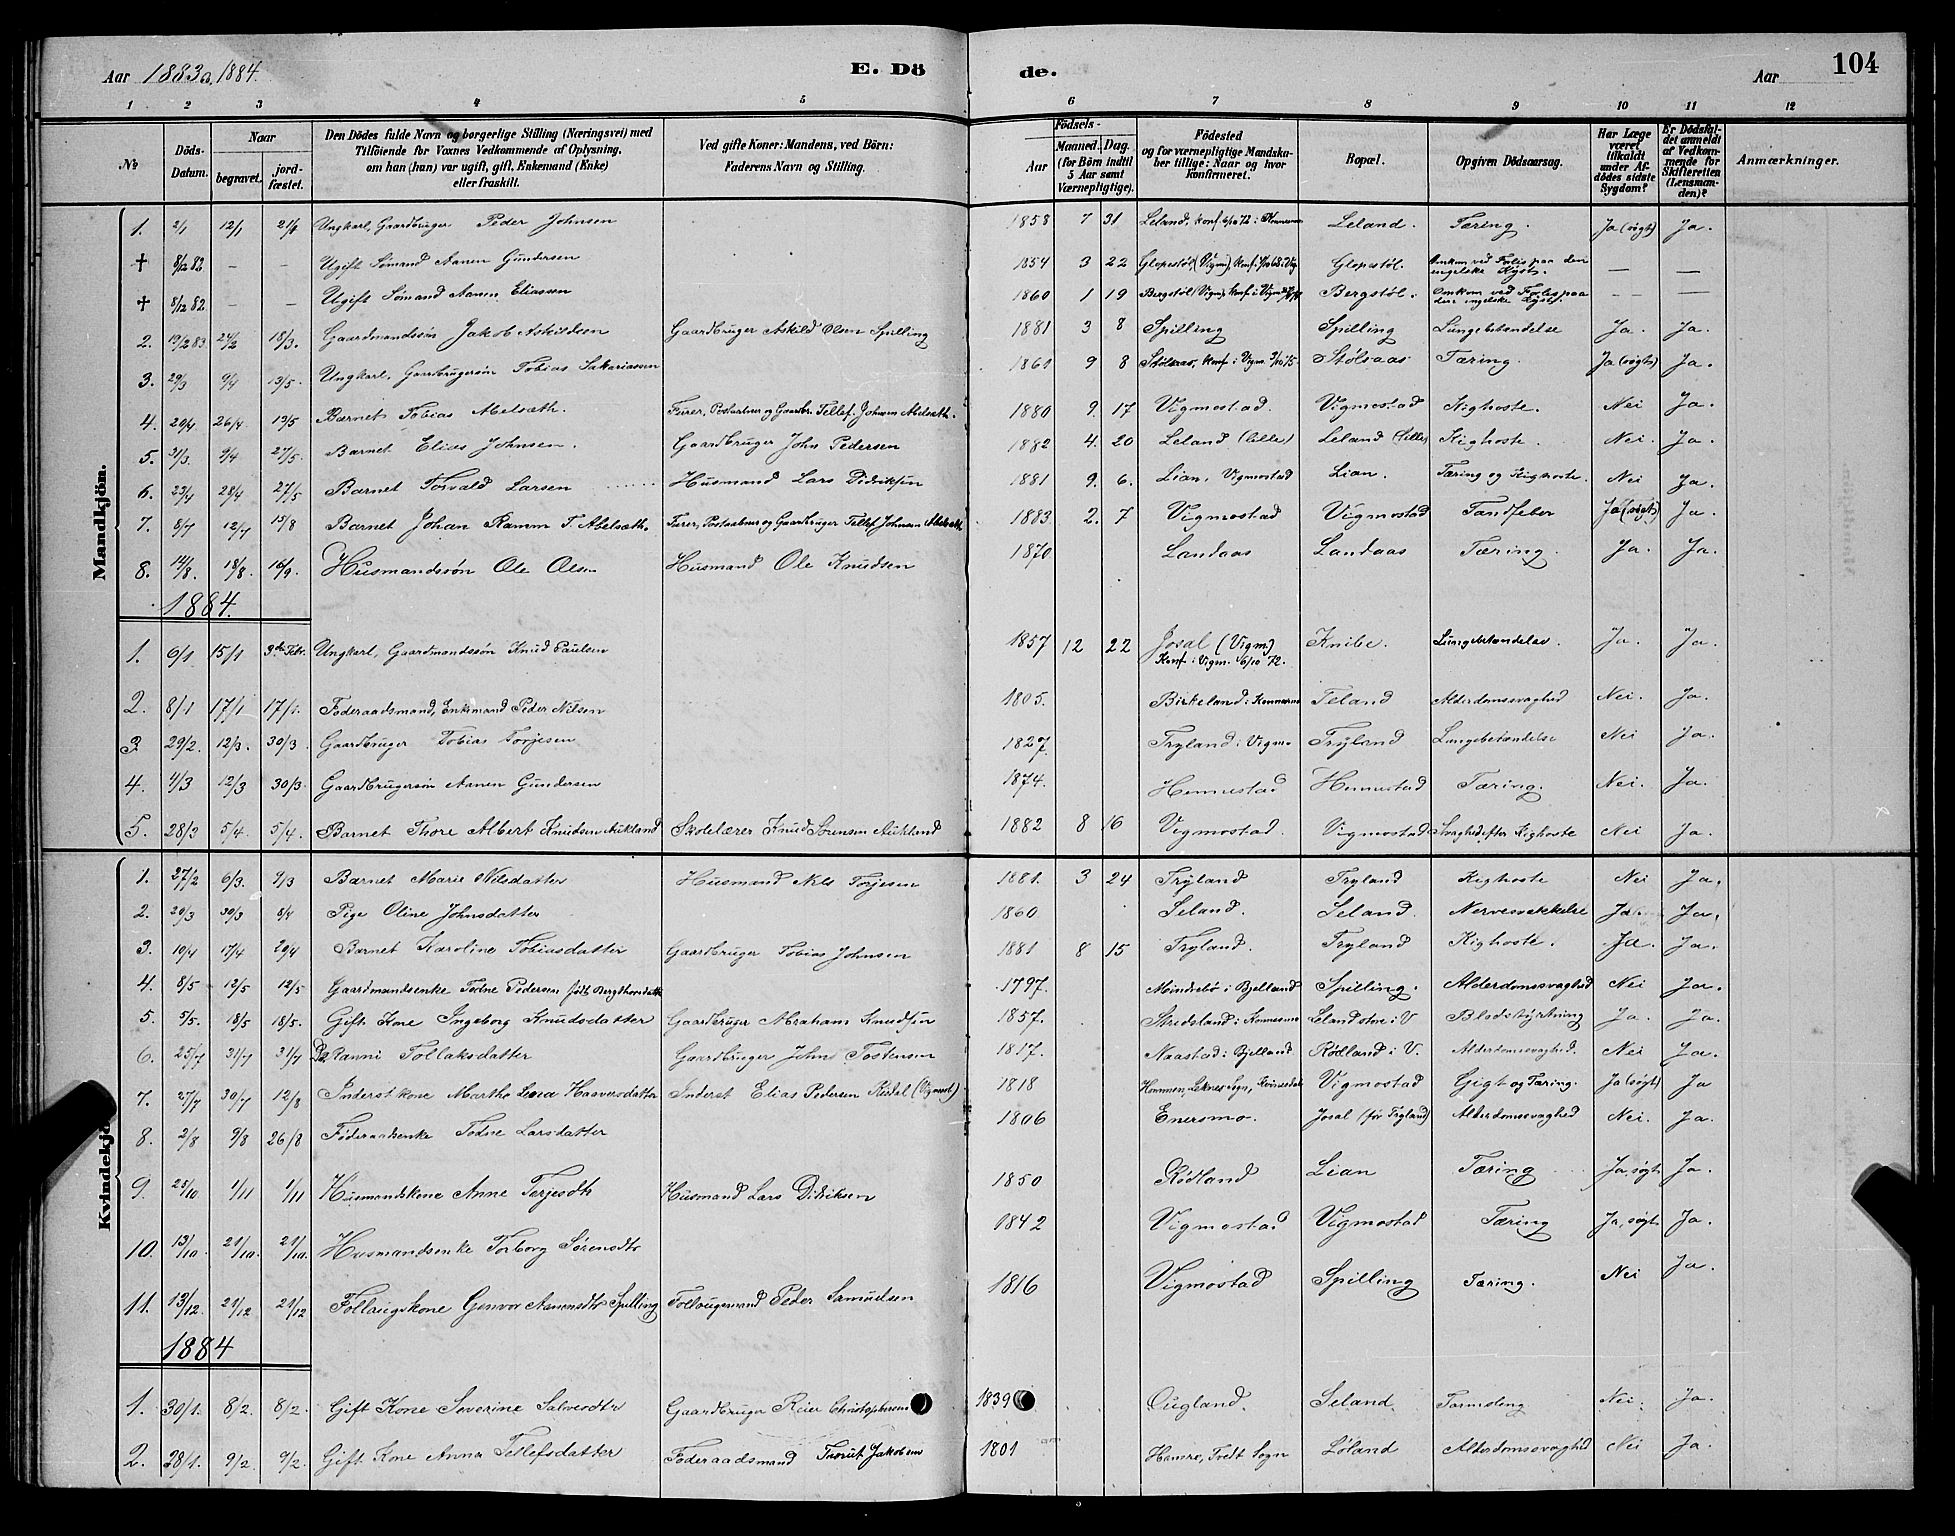 Aar 1883 a 1884. E. Dö de. Aar 104
1 2 3 4 5 6 7 8 9 10 11 12
No Döds-Datum. Naar begravet. jord-fæstet. Den Dödes fulde Navn og borgerlige Stilling (Næringsvei) med Tilföiende for Voxnes Vedkommende af Oplysning, om han (han) var ugift, gift, Enkemand (Enke) eller fraskilt. Ved gifte Koner: Mandens, ved Börn: Faderens Navn og Stilling. Födsels- Aar Maaned. Dag. (for Börn indtil 5 Aar samt Værnepligtige). Födested og for værnepligtige Mandska-ber tillige: Naar og hvor konfirmeret. Bopæl. Opgiven Dödsaarsag. Har Læge været tilkaldt under Af-dödes sidste Sygdom? Er Dödsfal-det anmeldt af Vedkom-mende for Skifteretten (Lensman-den)? Anmærkninger.
Mandkjön.
1. 2/1 12/1 21/1 Ungkarl, Gaardbruger Peder Johnsen 1858 7 31 Leland, konf. 6/10 72 i Leland. Tæring. Ja (søgt) Ja.
† 8/12 82 - - Ugift Sømand Aanen Gundersen 1854 3 22 Glopestøl (Vigm), Konf. Glopestøl. Omkom ved Forlis paa den engelske Kyst. - -
† 8/12 82. - - Ugift Sømand Aanen Eliassen 1860 1 19 Bergstøl (Vigm), Konf. i Vigm. Bergstøl. Omkom ved Forlis paa den engelske Kyst. - -
2. 19/2 83. 24/2 18/3. Gaardmandssøn Jakob Askildsen Gaardbruger Askild Olsen Spilling 1881 3 8 Spilling Spilling Lungebetændelse Ja. Ja.
3. 29/3 9/4 13/5. Ungkarl, Gaardbrugersøn Tobias Sakariassen 1861 9 8 Stølsaas, Konf. i Vigm. 3/10 75 Stølsaas Tæring. Ja (søgt) Ja.
4. 20/4 26/4 13/5 Barnet Tobias Abelsæth. Furer, Postaabner og Gaardbr. Tellef Johnsen Abelsæth. 1880 9. 17 Vigmostad. Vigmostad Kighoste. Nei Ja.
5. 31/3. 9/4 27/5. Barnet Elias Johnsen. Gaardbruger John Pedersen 1882 4. 20 Leland (lille) Leland (lille) Kighoste. Nei. Ja.
6. 23/4 28/4 27/5 Barnet Torvald Larsen Husmand Lars Didriksen 1881 9. 6. Lian, Vigmostad Lian. Tæring og Kighoste. Nei Ja.
7. 8/7 12/7 15/8 Barnet Johan Ramm T. Abelsæth. Furer, Postaabner og Gaardbruger Tellef Johnsen Abelsæth. 1883 2. 7 Vigmostad Vigmostad Tandfeber Ja (søgt) Ja.
8. 14/8. 18/8. 16/9. Husmandssøn Ole Olsen Husmand Ole Knudsen 1870 Landaas Landaas Tæring. Ja. Ja.
1884.
1. 6/1 15/1 3de Febr. Ungkarl, Gaardmandssøn Knud Paulsen 1857 12 22 Josal (Vigm) Konf. i Vigm. 6/10 72. Knibe. Lungebetændelse Ja. Ja.
2. 8/1 17/1 17/1. Føderaadsmand, Enkemand Peder Nilsen 1805. Birkeland i Konnerm Teland Alderdomssvaghed Nei. Ja.
3 29/2. 12/3. 30/3 Gaardbruger Tobias Torjesen 1827. Tryland i Vigmo Tryland Lungebetændelse Nei Ja.
4. 4/3 12/3 30/3 Gaardbrugersøn Aanen Gundersen 1874. Hennestad Hennestad Tæring. Nei Ja.
5. 28/3 5/4. 5/4. Barnet Thore Albert Knudsen Aukland Skolelærer Knud Sørensen Aukland 1882 8 16 Vigmostad. Vigmostad Svaghed efter Kighoste Nei Ja.
Kvindekjön.
1. 27/2 6/3. 9/3 Barnet Marie Nilsdatter Husmand Nils Torjesen 1881. 3 24 Tryland Tryland Kighoste Nei Ja.
2. 20/3 30/3 8/4 Pige Oline Johnsdatter 1860. Seland. Seland. Nervesvækkelse Ja. Ja.
3. 10/4 17/4 29/4 Barnet Karoline Tobiasdatter Gaardbruger Tobias Johnsen 1881 8 15 Tryland. Tryland Kighoste. Ja. Ja.
4. 8/5 12/5 12/5 Gaardmandsenke Todne Pedersen født Bergthorsdatter 1797. i Bjelland Spilling. Alderdomssvaghed Nei Ja.
5. 5/5. 18/5 18/5. Gift Kone Ingeborg Knudsdatter Gaardbruger Abraham Knudsen 1857. Stredsland i Konnesmo Leland store i V Blodstyrtning Ja. Ja.
6. 25/7 31/7 31/7 Ranni Tollaksdatter Gaardbruger John Tostensen 1817. Naastad i Bjelland Rødland i V. Alderdomssvaghed. Nei Ja.
7. 27/7 30/7 12/8 Inderstkone Marthe Lena Haaversdatter Inderst Elias Pedersen Risdal (Vigmost) 1818 Hommen, Leknes Sogn, Kvinesdal Vigmostad Gigt og Tæring. Ja (søgt) Ja
8. 2/8 9/8 26/8 Føderaadsenke Todne Larsdatter 1806 Enersmo. Josal (før Tryland) Alderdomssvaghed Nei. Ja.
9. 25/10 1/11 1/11 Husmandskone Anne Torjesdtr Husmand Lars Didriksen 1850 Rødland Lian Tæring Ja, søgt Ja.
10. 13/10. 21/10. 21/10. Husmandsenke Torborg Sørensdtr 1842 Vigmostad Vigmostad Tæring Ja, søgt Ja.
11. 13/12. 21/12 21/12 Follaugskone Gunvor Aanensdtr Spilling Follaugsmand Peder Samuelsen 1816 Vigmostad Spilling Tæring. Nei Ja.
1884
1. 30/1. 8/2. 8/2. Gift Kone Severine Salvesdtr Gaardbruger Reier Christophersen 1839 Ougland. Seland Nei. Ja.
2. 28/1. 9/2. 9/2. Gift Kone Anna Tellefsdatter Føderaadsmand Tarut Jakobsen 1801 Hamre, Tvedt Sogn Løland Alderdomssvaghed Nei Ja.